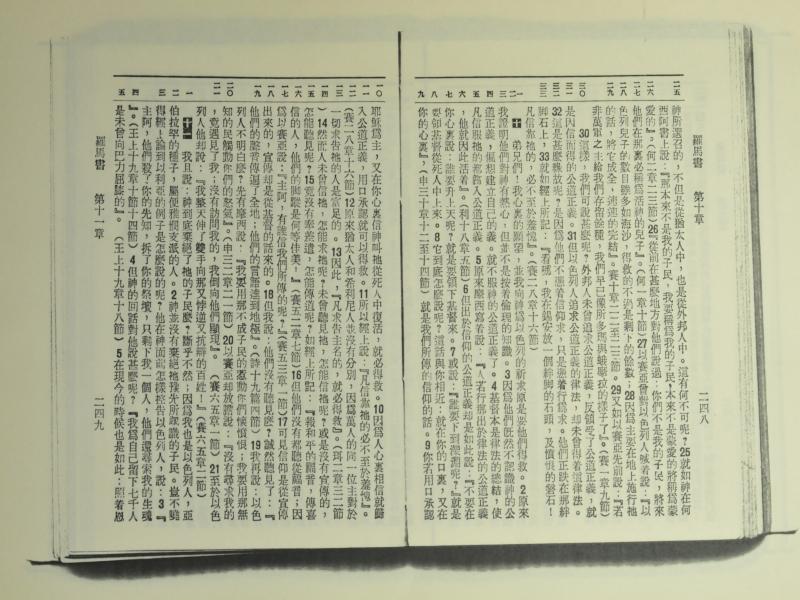 羅馬書 第十章
二四八
神所選召的，不但是從猶太人中，也是從外邦人中。這有何不可呢？25就如神在何
西阿書上說：『那本來不是我的子民，我要稱爲我的子民，本來不是蒙愛的將稱爲蒙
愛的』。（何二章二三節）26從前在甚麼地方對他們說過，你們不是我的子民，將來
他們在那裏必稱爲活神的兒子。（何一章十節）27以賽亞曾對以色列人喊着說：『以
色列兒子的數目雖多如海沙，得救的不過是剩下的餘數；28因爲主要在地上施行祂
的話，將它成全，速速的完結』。29又如以賽亞先前說：『若
非萬軍之主給我們存留餘種，我們早已像所多瑪與蛾摩拉的樣子了』。（賽一章九節）
30這樣，我們可說甚麼呢？外邦人未曾追求公道正義，反領受了公道正義，就
是因信而得的公道正義。31但以色列人追求公道正義的律法，却未曾得着這律法。
32這是甚麼緣故呢？是因爲他們不憑着信仰求，只是憑着行爲求。他們正跌在那絆
脚石上，33就如經上所記：『看哪，我在錫安放一個絆脚的石頭，及憤恨的磐石！
凡信靠祂的，必不至於羞愧』。（賽二八章十六節）
弟兄們，我心裏的願望，並我向神爲以色列的祈求原是要他們得救。2原來
我證明他們對神有熱心，但並不是按着倫理的知識。3因爲他們既然不認識神的公
道正義，慣想建立自己的義，就不服神的公道正義了。4基督本是律法的總結，使
凡信服祂的都進入公道正義。5原來摩西寫着說：『人若行那出於律法的公道正義
，他就因此活着』。（利十八章五節）6但出於信仰的公道正義却是如此說：『不要在
你心裏說：誰要升上天呢？就是要領下基督來。7或說：『誰要下到深淵呢？』就是
要領基督從死人中上來。8它到底怎麼說呢？這話與你相近；就在你的口裏，又在
你的心裏』。（申三章十二至十四節）就是我們所傳的信仰的話。9你你若用口承認
耶穌爲主，又在你心裏信神叫祂從死人中復活，就必得救。10因爲人心裏相信就歸
入公道正義，用口承認就可以得救。11所以經上說：『凡信靠祂的必不至於羞愧』。
（賽二八章十六節）12原來猶太人和希利尼人並沒有分別，因爲萬人的同一位主對於
一切求告祂的人是富足的。13因此，『凡求告主名的，就必得救』。（珥二章三二節
）14然而人未曾信祂，怎能求祂呢？未曾聽見祂，怎能信祂呢？或是沒有宣傳的，
怎能聽見呢？15若沒有奉差遣，怎能傳道呢？如經上所記：『報和平的福音，傳喜
信的人，他們的脚蹤是何等佳美』。（賽五二章七節）16但他們沒有都聽從福音；因
爲以賽亞說：『主阿，有誰信我們所傳的呢？』（賽五三章一節）17可見信仰是從宣傳
出來的，宣傳却是從基督的話來的。18但我說：他們沒有聽見麼？誠然聽見了：『
他們的聲音傳遍了全地；他們的言語達到地極』。（詩十九篇四節）19我再說：以色
列人不明白麼？先有摩西說：『我要用那不成子民的激動你們懷憤恨；我要用那無
知的民觸動你們的怒氣』。（申三二章二一節）20以賽亞却放膽說：『沒有尋求我的
，竟遇見了我；沒有訪問我的，我倒向他們顯現』。（賽六五章一節）21至於以色
列人他却說：『我整天伸了雙手向那叉悖逆叉抗辯的百姓！』（賽六五章二節）
十一 我且說，神到底棄絕了祂的子民麼？斷乎不然；因爲我也是以色列人，亞
伯拉罕的種子，屬便雅憫支派的人。2神並沒有棄絕祂預先所認識的子民。豈不曉
得經上論到以利亞的例子是怎麼說的呢？他在神面前怎樣控告以色列人，說：3『
主阿，他們殺了你的先知，拆了你的祭壇，只剩下我一個人，他們還尋索我的生魂
』。（王上十九章十節十四節）4但神的回話對他說甚麼呢？『我爲自己留下七千人
是未曾向巴力屈膝的』。（王上十九章十八節）5在現今的時候也是如此；照着恩
羅馬書 第十一章
二四九